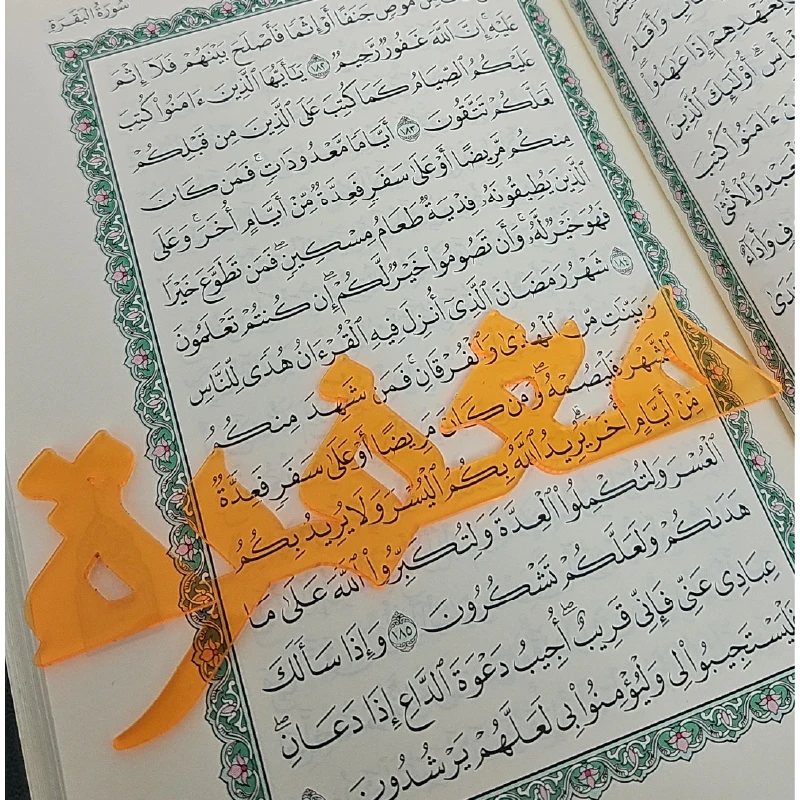 سُورَةُ البَقَرَةِ
مِن مُّوصٍ جَنَفًا أَوْ إِثْمًا فَأَصْلَحَ بَيْنَهُمْ فَلَآ إِثْمَ
عَلَيْهِ إِنَّ ٱللَّهَ غَفُورٌ رَّحِيمٌ ١٨٢ يَٰٓأَيُّهَا ٱلَّذِينَ ءَامَنُوا۟ كُتِبَ
عَلَيْكُمُ ٱلصِّيَامُ كَمَا كُتِبَ عَلَى ٱلَّذِينَ مِن قَبْلِكُمْ
لَعَلَّكُمْ تَتَّقُونَ ١٨٣ أَيَّامًا مَّعْدُودَٰتٍ ۚ فَمَن كَانَ
مِنكُم مَّرِيضًا أَوْ عَلَىٰ سَفَرٍ فَعِدَّةٌ مِّنْ أَيَّامٍ أُخَرَ ۚ وَعَلَى
ٱلَّذِينَ يُطِيقُونَهُۥ فِدْيَةٌ طَعَامُ مِسْكِينٍ ۖ فَمَن تَطَوَّعَ خَيْرًا
فَهُوَ خَيْرٌ لَّهُۥ ۚ وَأَن تَصُومُوا۟ خَيْرٌ لَّكُمْ ۖ إِن كُنتُمْ تَعْلَمُونَ
١٨٤ شَهْرُ رَمَضَانَ ٱلَّذِىٓ أُنزِلَ فِيهِ ٱلْقُرْءَانُ هُدًى لِّلنَّاسِ
وَبَيِّنَٰتٍ مِّنَ ٱلْهُدَىٰ وَٱلْفُرْقَانِ ۚ فَمَن شَهِدَ مِنكُمُ
ٱلشَّهْرَ فَلْيَصُمْهُ ۖ وَمَن كَانَ مَرِيضًا أَوْ عَلَىٰ سَفَرٍ فَعِدَّةٌ
مِّنْ أَيَّامٍ أُخَرَ ۗ يُرِيدُ ٱللَّهُ بِكُمُ ٱلْيُسْرَ وَلَا يُرِيدُ بِكُمُ
ٱلْعُسْرَ وَلِتُكْمِلُوا۟ ٱلْعِدَّةَ وَلِتُكَبِّرُوا۟ ٱللَّهَ عَلَىٰ مَا
هَدَىٰكُمْ وَلَعَلَّكُمْ تَشْكُرُونَ ١٨٥ وَإِذَا سَأَلَكَ
عِبَادِى عَنِّى فَإِنِّى قَرِيبٌ ۖ أُجِيبُ دَعْوَةَ ٱلدَّاعِ إِذَا دَعَانِ ۖ
فَلْيَسْتَجِيبُوا۟ لِى وَلْيُؤْمِنُوا۟ بِى لَعَلَّهُمْ يَرْشُدُونَ
مغفرة
وَأَقَامَ
بِعَهْدِهِمْ إِذَا عَٰهَدُوا۟ ۖ
أُو۟لَٰٓئِكَ ٱلَّذِينَ
ءَامَنُوا۟ كُتِبَ
وَٱلْأُنثَىٰ
وَأَدَآءٌ